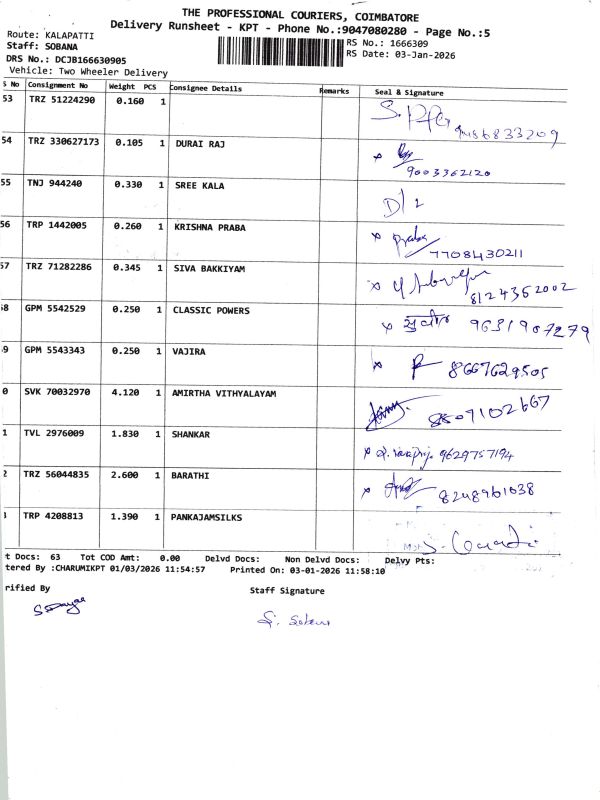 THE PROFESSIONAL COURIERS, COIMBATORE
Delivery Runsheet - KPT - Phone No.:9047080280 - Page No.:5
Route: KALAPATTI
RS No.: 1666309
Staff: SOBANA
RS Date: 03-Jan-2026
DRS No.: DCJB166630905
Vehicle: Two Wheeler Delivery
S No Consignment No Weight PCS Consignee Details Remarks Seal & Signature
53 TRZ 51224290 0.160 1
54 TRZ 330627173 0.105 1 DURAI RAJ
9003362120
55 TNJ 944240 0.330 1 SREE KALA
D/2
56 TRP 1442005 0.260 1 KRISHNA PRABA x Praba
7708430211
57 TRZ 71282286 0.345 1 SIVA BAKKIYAM
8124362002
58 GPM 5542529 0.250 1 CLASSIC POWERS x 9631907279
9 GPM 5543343 0.250 1 VAJIRA x 8667629505
0 SVK 70032970 4.120 1 AMIRTHA VITHYALAYAM 8807102667
1 TVL 2976009 1.830 1 SHANKAR x 9629757194
2 TRZ 56044835 2.600 1 BARATHI x 8248961038
TRP 4208813 1.390 1 PANKAJAMSILKS
t Docs: 63 Tot COD Amt: 0.00 Delvd Docs: Non Delvd Docs: Delvy Pts:
tered By :CHARUMIKPT 01/03/2026 11:54:57 Printed On: 03-01-2026 11:58:10
rified By Staff Signature